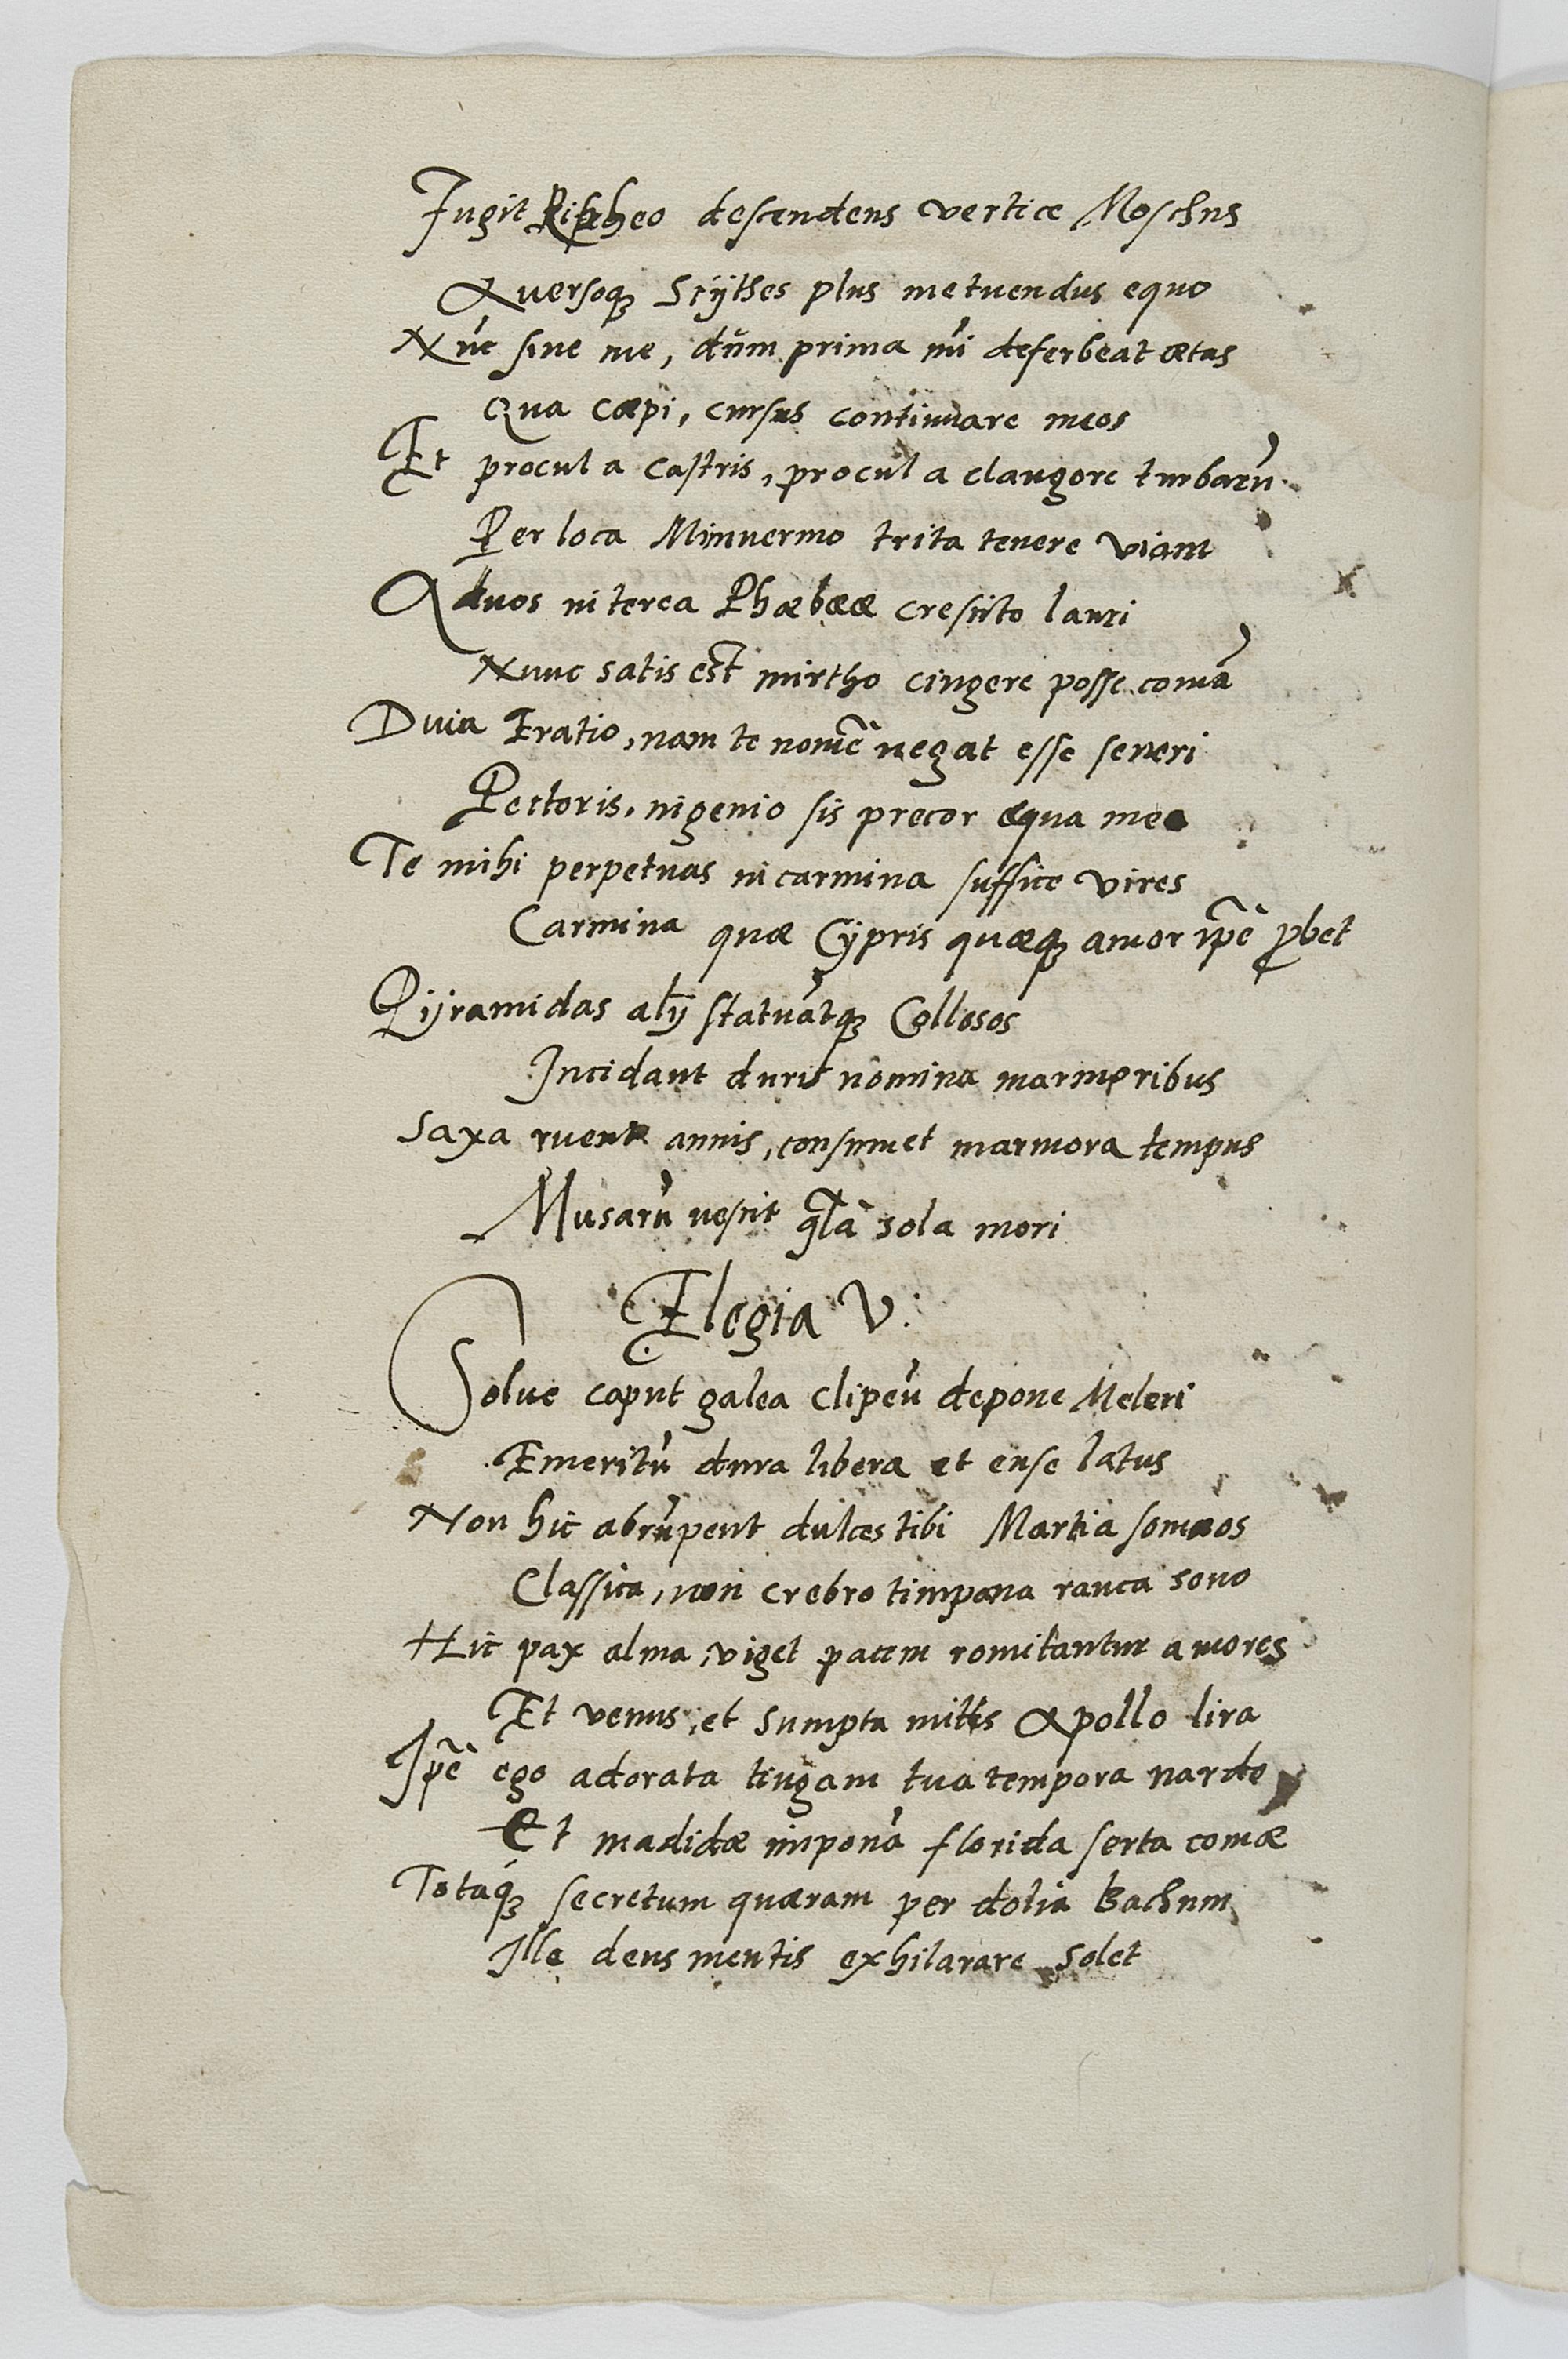 Fugit Ripheo descendens vertice Moschus
Aversoq; Scÿthes plus metuendus equo
Nũc sine me, dum prima mi deferbeat ætas
Qua cæpi, cursus continuare meos
Et procul a castris, procul a clangore turbarũ
Per loca Mimnermo trita tenere viam
Aduos interea Phœbææ crescito lauri
Nunc satis est mirtho cingere posse comã
Duia Eratio, nam te nomẽ negat esse seueri
Pectoris, ingenio sis precor æqua meo
Te mihi perpetuas in carmina suffice vires
Carmina quæ Cÿpris quæq; amor ip̃e ꝓbet
Pÿramidas alÿ statuãtq; Collosos
Incidant duris nomina marmoribus
Saxa ruent annis, consumet marmora tempus
Musarũ nescit gl̃a sola mori
Elegia V.
Solue caput galea clipeũ depone Meleri
Emeritũ dura libera et ense latus
Non hic abrũpent dulces tibi Martia somnos
Classica, non crebro timpana rauca sono
Hic pax alma, viget pacem comitantur amores
Et venus, et sumpta mitis Apollo lira
Ip̃e ego adorata tingam tua tempora nardo
Et madidæ imponã florida serta comæ
Totáq; secretum quæram per dolia Bachum
Ille deus mentis exhilarare solet